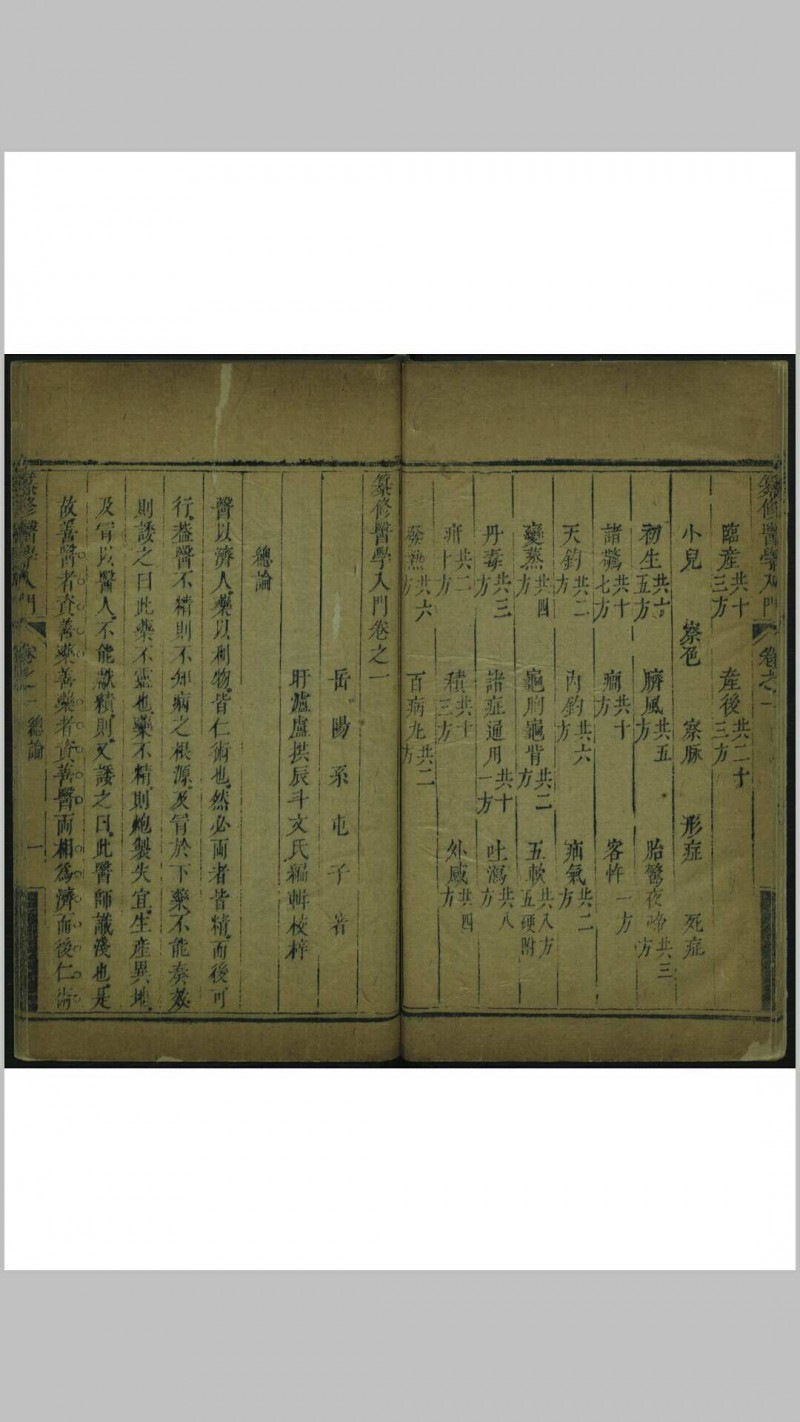 纂修醫學入門 卷之一
臨産共十三方 産後共二十三方
小兒 察色 察脉 形症 死症
初生共六五方 臍風共五方 胎驚夜啼共三方
諸驚共十七方 癇共十方 客忤一方
天鈎共二方 內鈎共六方 疝氣共二方
變蒸共四方 龜胸龜背共二方 五軟共八方五硬附
丹毒共三方 諸症通用共十一方 吐瀉共八方
疳共二十方 積共十三方 外感共四方
發熱共六方 百病九共二方
纂修醫學入門卷之一
岳陽系屯子著
盱瀘盧拱辰斗文氏編輯校梓
總論
醫以濟人藥以利物皆仁術也然必兩者皆精而後可
行蓋醫不精則不知病之根源及冐於下藥不能奏効
則諉之曰此藥不靈也藥不精則炮製失宜生產異地
及冐以醫人不能獻積則又諉之曰此醫師識淺也是
故善醫者資善藥善藥者資善醫兩相為濟而後仁術
纂修醫學入門 卷之一 總論 一